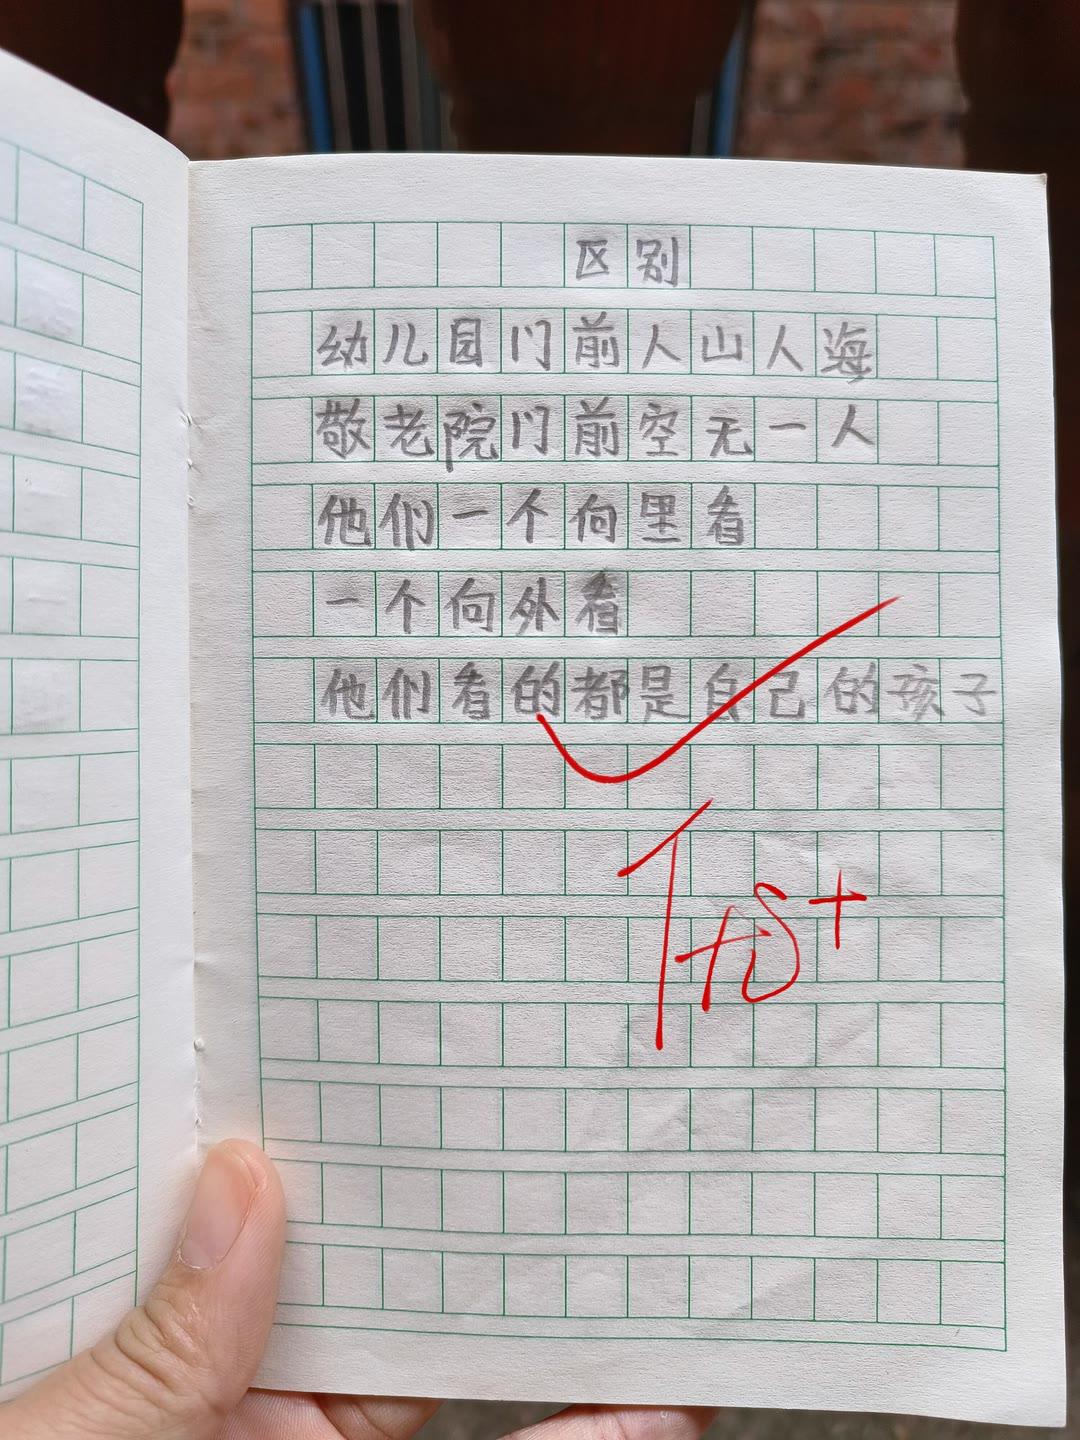 区别
幼儿园门前人山人海
敬老院门前空无一人
他们一个向里看
一个向外看
他们看的都是自己的孩子
优+